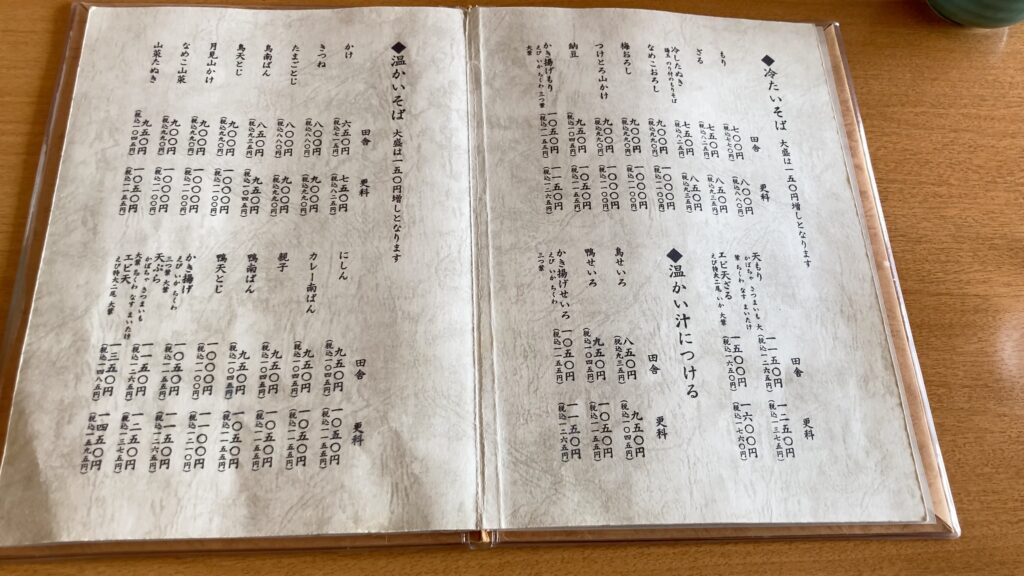 ◆冷たいそば 大盛は一五〇円増しとなります
田舎 更科
もり 七〇〇円 (税込七七〇円) 八〇〇円 (税込八八〇円)
ざる 七五〇円 (税込八二五円) 八五〇円 (税込九三五円)
冷したぬき 七五〇円 (税込八二五円) 八五〇円 (税込九三五円)
揚玉 のり付のもりそば
なめこおろし 九〇〇円 (税込九九〇円) 一〇〇〇円 (税込一一〇〇円)
梅おろし 九〇〇円 (税込九九〇円) 一〇〇〇円 (税込一一〇〇円)
つけとろ山かけ 九〇〇円 (税込九九〇円) 一〇〇〇円 (税込一一〇〇円)
納豆 九五〇円 (税込一〇四五円) 一〇五〇円 (税込一一五五円)
かき揚げもり 一〇五〇円 (税込一一五五円) 一一五〇円 (税込一二六五円)
えび いか ちくわ 三つ葉
大葉
田舎 更科
天もり 一一五〇円 (税込一二六五円) 一二五〇円 (税込一三七五円)
かぼちゃ さつまいも 大
葉 ちくわ なす まいたけ
エビ天ざる 一五〇〇円 (税込一六五〇円) 一六〇〇円 (税込一七六〇円)
えび特大二尾 いか 大葉
◆温かい汁につける
田舎 更科
鳥せいろ 八五〇円 (税込九三五円) 九五〇円 (税込一〇四五円)
鴨せいろ 九五〇円 (税込一〇四五円) 一〇五〇円 (税込一一五五円)
かき揚げせいろ 一〇五〇円 (税込一一五五円) 一一五〇円 (税込一二六五円)
えび いか ちくわ
三つ葉
◆温かいそば 大盛は一五〇円増しとなります
田舎 更科
かけ 六五〇円 (税込七一五円) 七五〇円 (税込八二五円)
きつね 八〇〇円 (税込八八〇円) 九〇〇円 (税込九九〇円)
たまごとじ 八〇〇円 (税込八八〇円) 九〇〇円 (税込九九〇円)
鳥南ばん 八五〇円 (税込九三五円) 九五〇円 (税込一〇四五円)
鳥天とじ 九〇〇円 (税込九九〇円) 一〇〇〇円 (税込一一〇〇円)
月見山かけ 九〇〇円 (税込九九〇円) 一〇〇〇円 (税込一一〇〇円)
なめこ山菜 九〇〇円 (税込九九〇円) 一〇〇〇円 (税込一一〇〇円)
山菜たぬき 九五〇円 (税込一〇四五円) 一〇五〇円 (税込一一五五円)
田舎 更科
にしん 九五〇円 (税込一〇四五円) 一〇五〇円 (税込一一五五円)
カレー南ばん 九五〇円 (税込一〇四五円) 一〇五〇円 (税込一一五五円)
親子 九五〇円 (税込一〇四五円) 一〇五〇円 (税込一一五五円)
鴨南ばん 九五〇円 (税込一〇四五円) 一〇五〇円 (税込一一五五円)
鴨天とじ 一〇〇〇円 (税込一一〇〇円) 一一〇〇円 (税込一二一〇円)
かき揚げ 一〇五〇円 (税込一一五五円) 一一五〇円 (税込一二六五円)
えび いか ちくわ
三つ葉 大葉
天ぷら 一一五〇円 (税込一二六五円) 一二五〇円 (税込一三七五円)
かぼちゃ さつまいも
大葉 ちくわ なす まいたけ
エビ天 一三五〇円 (税込一四八五円) 一四五〇円 (税込一五九五円)
えび特大二尾 大葉